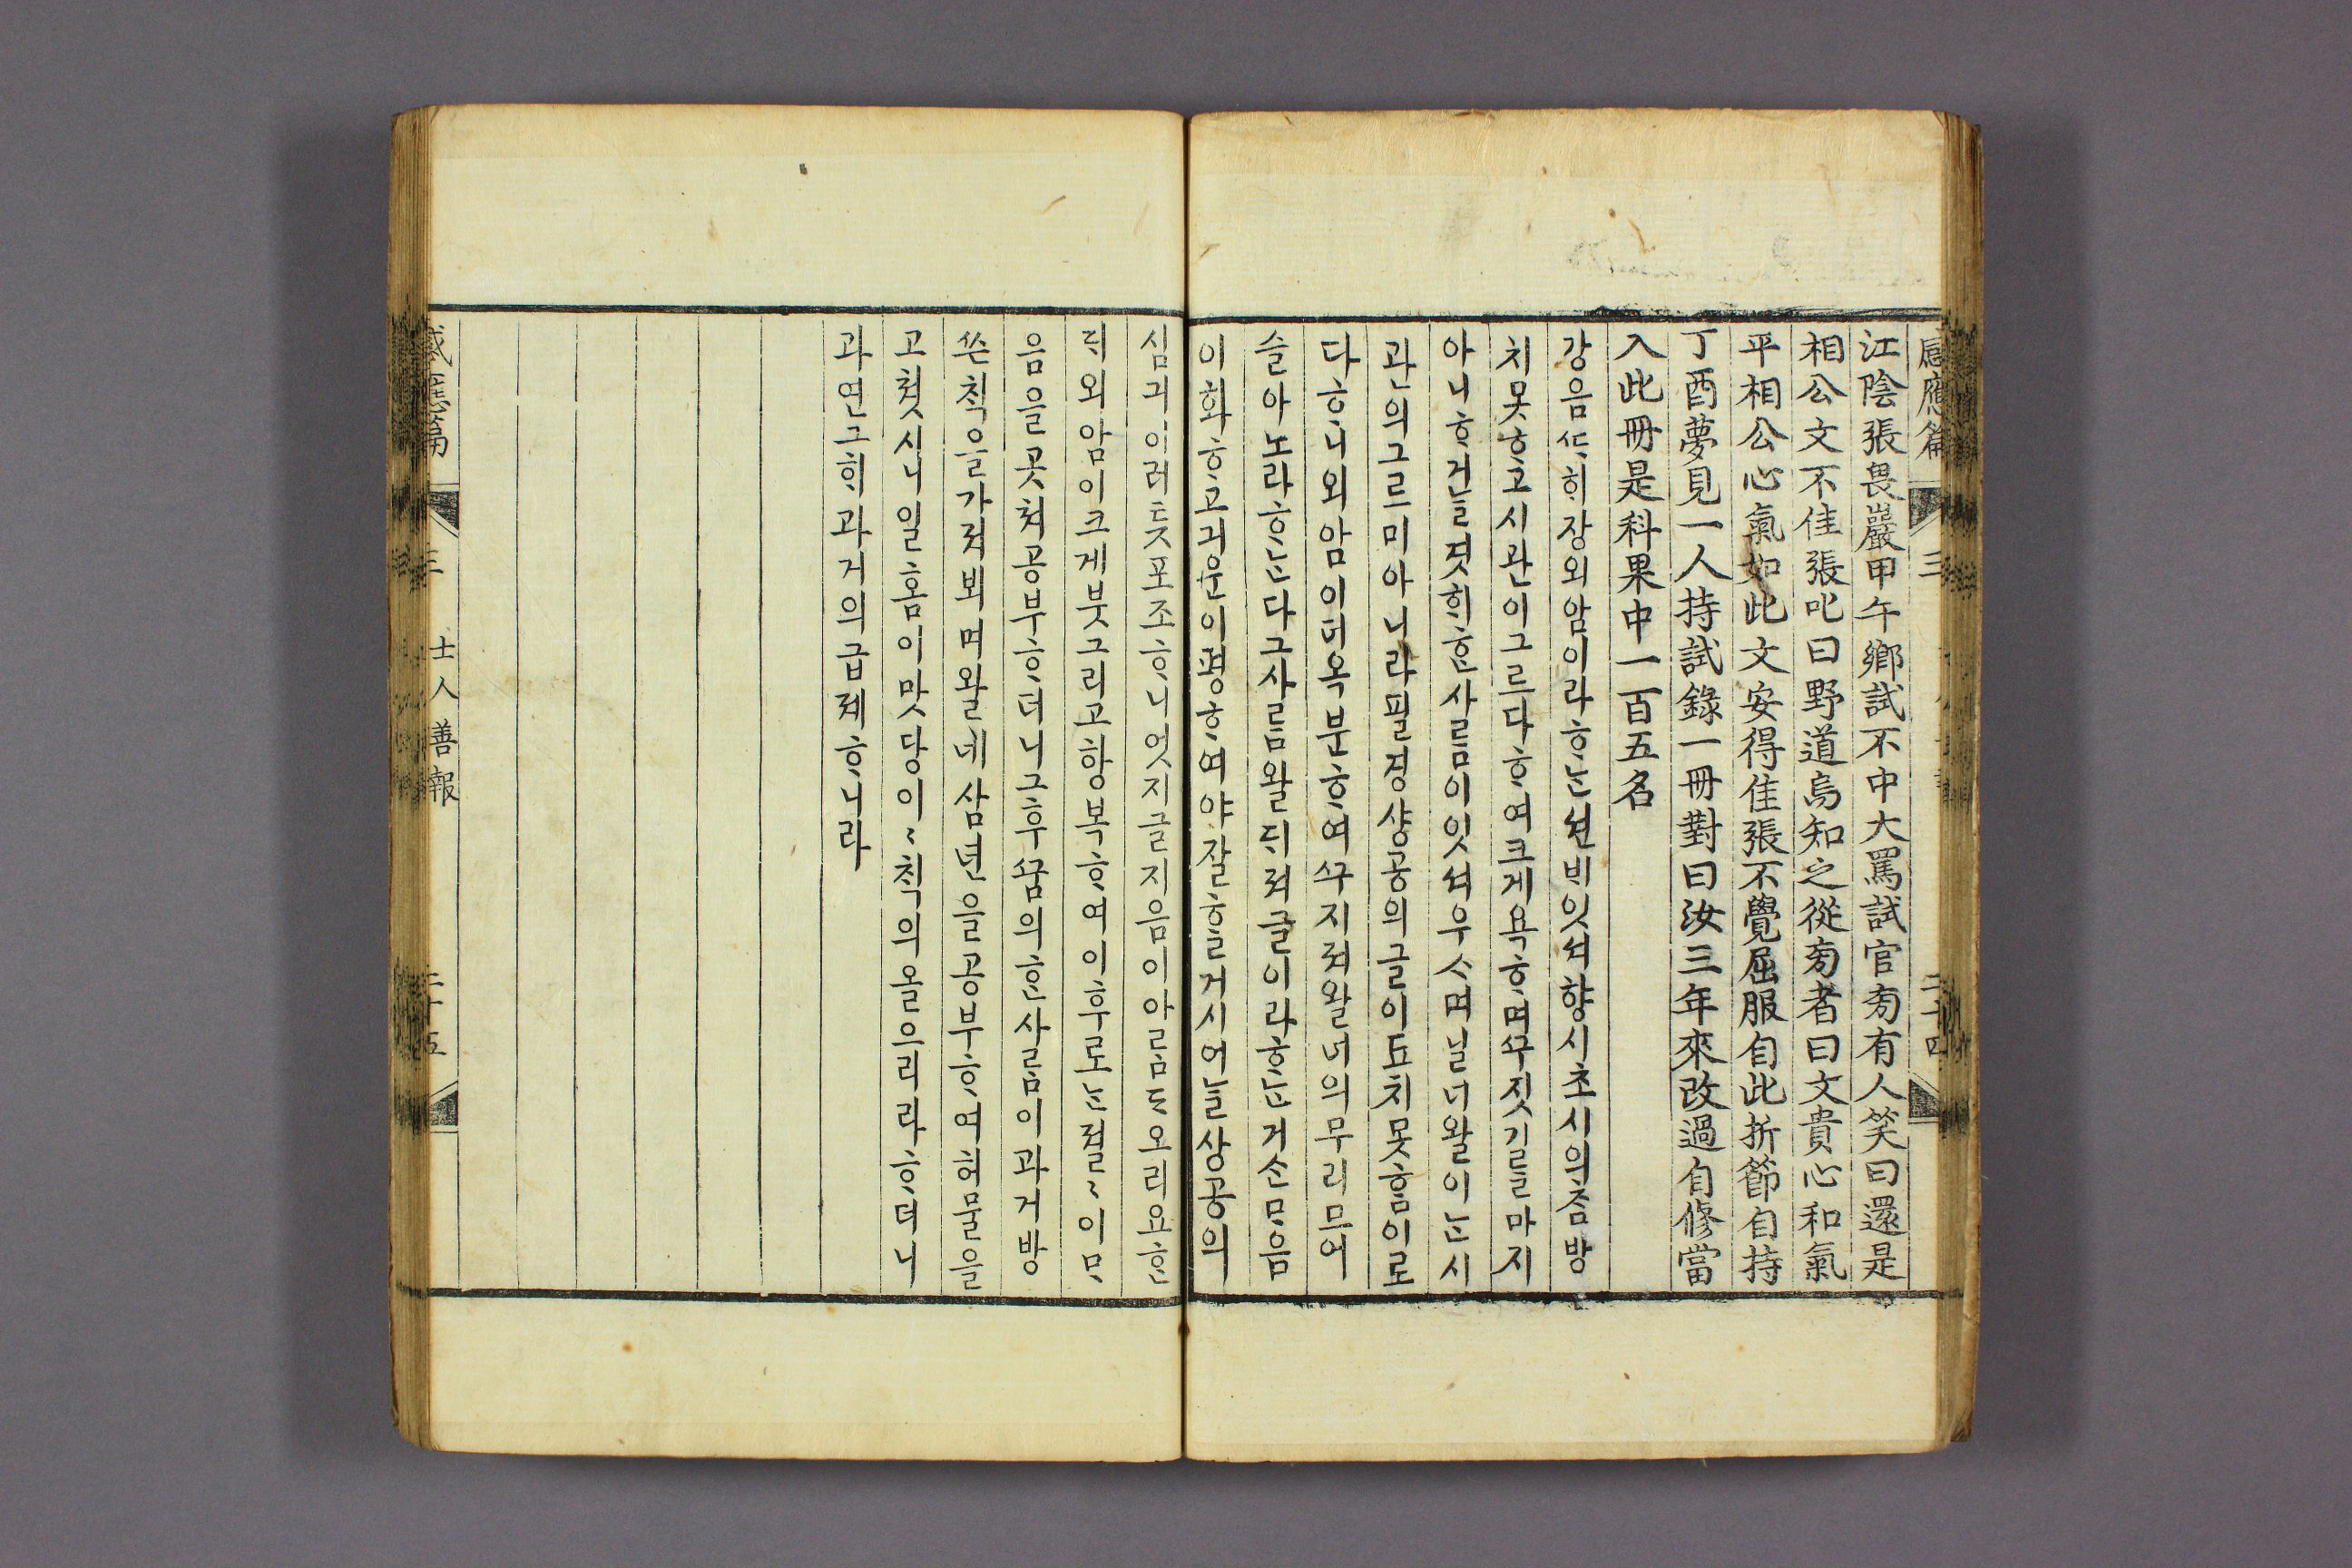 感應篇 三 二十四
江陰張畏巖甲午鄕試不中大罵試官旁有人笑曰還是
相公文不佳張叱曰野道烏知之從旁者曰文貴心和氣
平相公心氣如此文安得佳張不覺屈服自此折節自持
丁酉夢見一人持試錄一冊對曰汝三年來改過自修當
入此冊是科果中一百五名
강음ᄯᅡᄒᆡ장외암이라ᄒᆞᄂᆞᆫ션ᄇᆡ잇셔향시초시의ᄎᆞᆷ방
치못ᄒᆞ고시관이그르다ᄒᆞ여크게욕ᄒᆞ며ᄭᅮ짓기ᄅᆞᆯ마지
아니ᄒᆞ거ᄂᆞᆯ겻ᄒᆡᄒᆞᆫ사ᄅᆞᆷ이잇셔우ᄉᆞ며닐너왈이ᄂᆞᆫ시
관의그르미아니라필경샹공의글이되치못ᄒᆞᆷ이로
다ᄒᆞ니외암이더옥분ᄒᆞ여ᄭᅮ지져왈너의무리므어
슬아노라ᄒᆞᄂᆞᆫ다그사ᄅᆞᆷ왈ᄃᆡ져글이라ᄒᆞᄂᆞᆫ거ᄉᆞᆫᄆᆞ음
이화ᄒᆞ고긔운이평ᄒᆞ여야잘ᄒᆞᆯ거시어ᄂᆞᆯ상공의
심긔이러ᄐᆞᆺ포조ᄒᆞ니엇지글지음이아ᄅᆞᆷ도오리요ᄒᆞᆫ
ᄃᆡ외암이크게붓그리고항복ᄒᆞ여이후로ᄂᆞᆫ졀〻이ᄆᆞ
음을곳쳐공부ᄒᆞ더니그후ᄭᅮᆷ의ᄒᆞᆫ사ᄅᆞᆷ이과거방
쓴ᄎᆡᆨ을가져뵈며왈네삼년을공부ᄒᆞ여허물을
고쳣시니일홈이맛당이〻ᄎᆡᆨ의올으리라ᄒᆞ더니
과연그ᄒᆡ과거의급졔ᄒᆞ니라
感應篇 三 士人善報 二十五